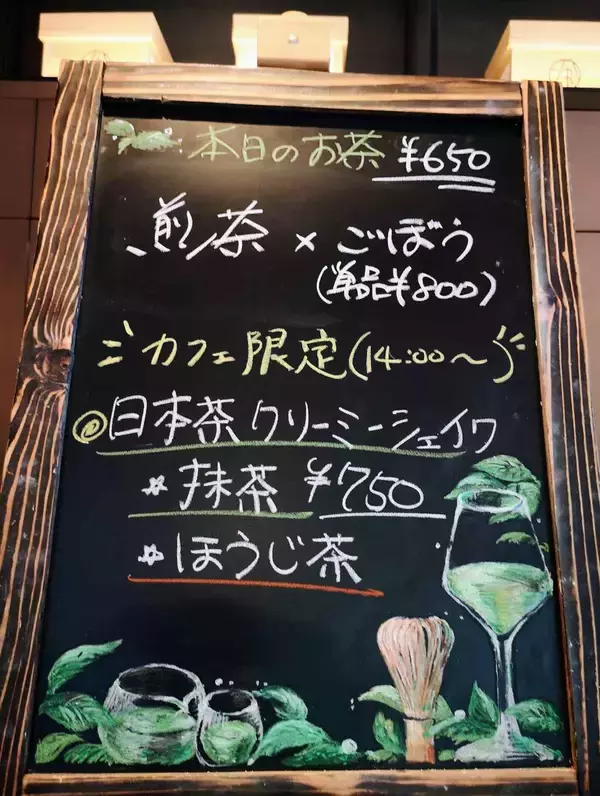 本日のお茶 ¥650
煎茶 × ごぼう
(単品¥800)
カフェ限定(14:00〜)
◎日本茶クリーミーシェイク
* 抹茶 ¥750
* ほうじ茶